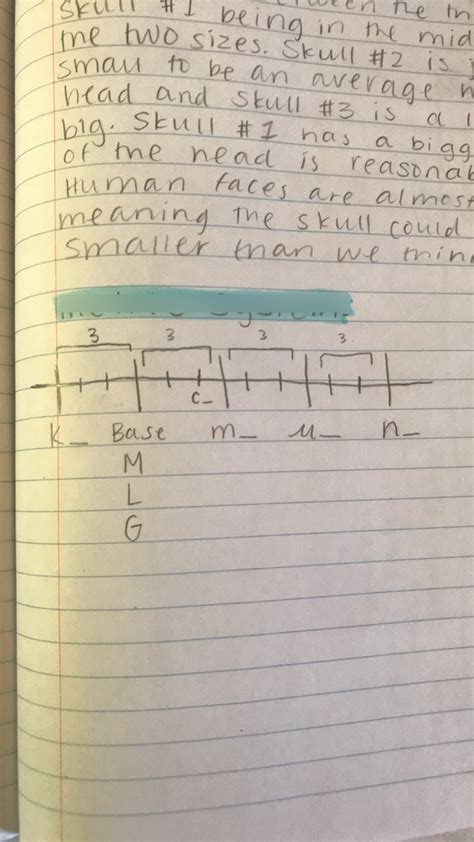 Skull #1 being in the mid
the two sizes. Skull #2 is
small to be an average
head and Skull #3 is a
big. Skull #1 has a bigg
of the head is reasonab
Human faces are almost
meaning the skull could
smaller than we thin
3 3 3 3
c_
K_ Base m_ μ_ n_
M
L
G